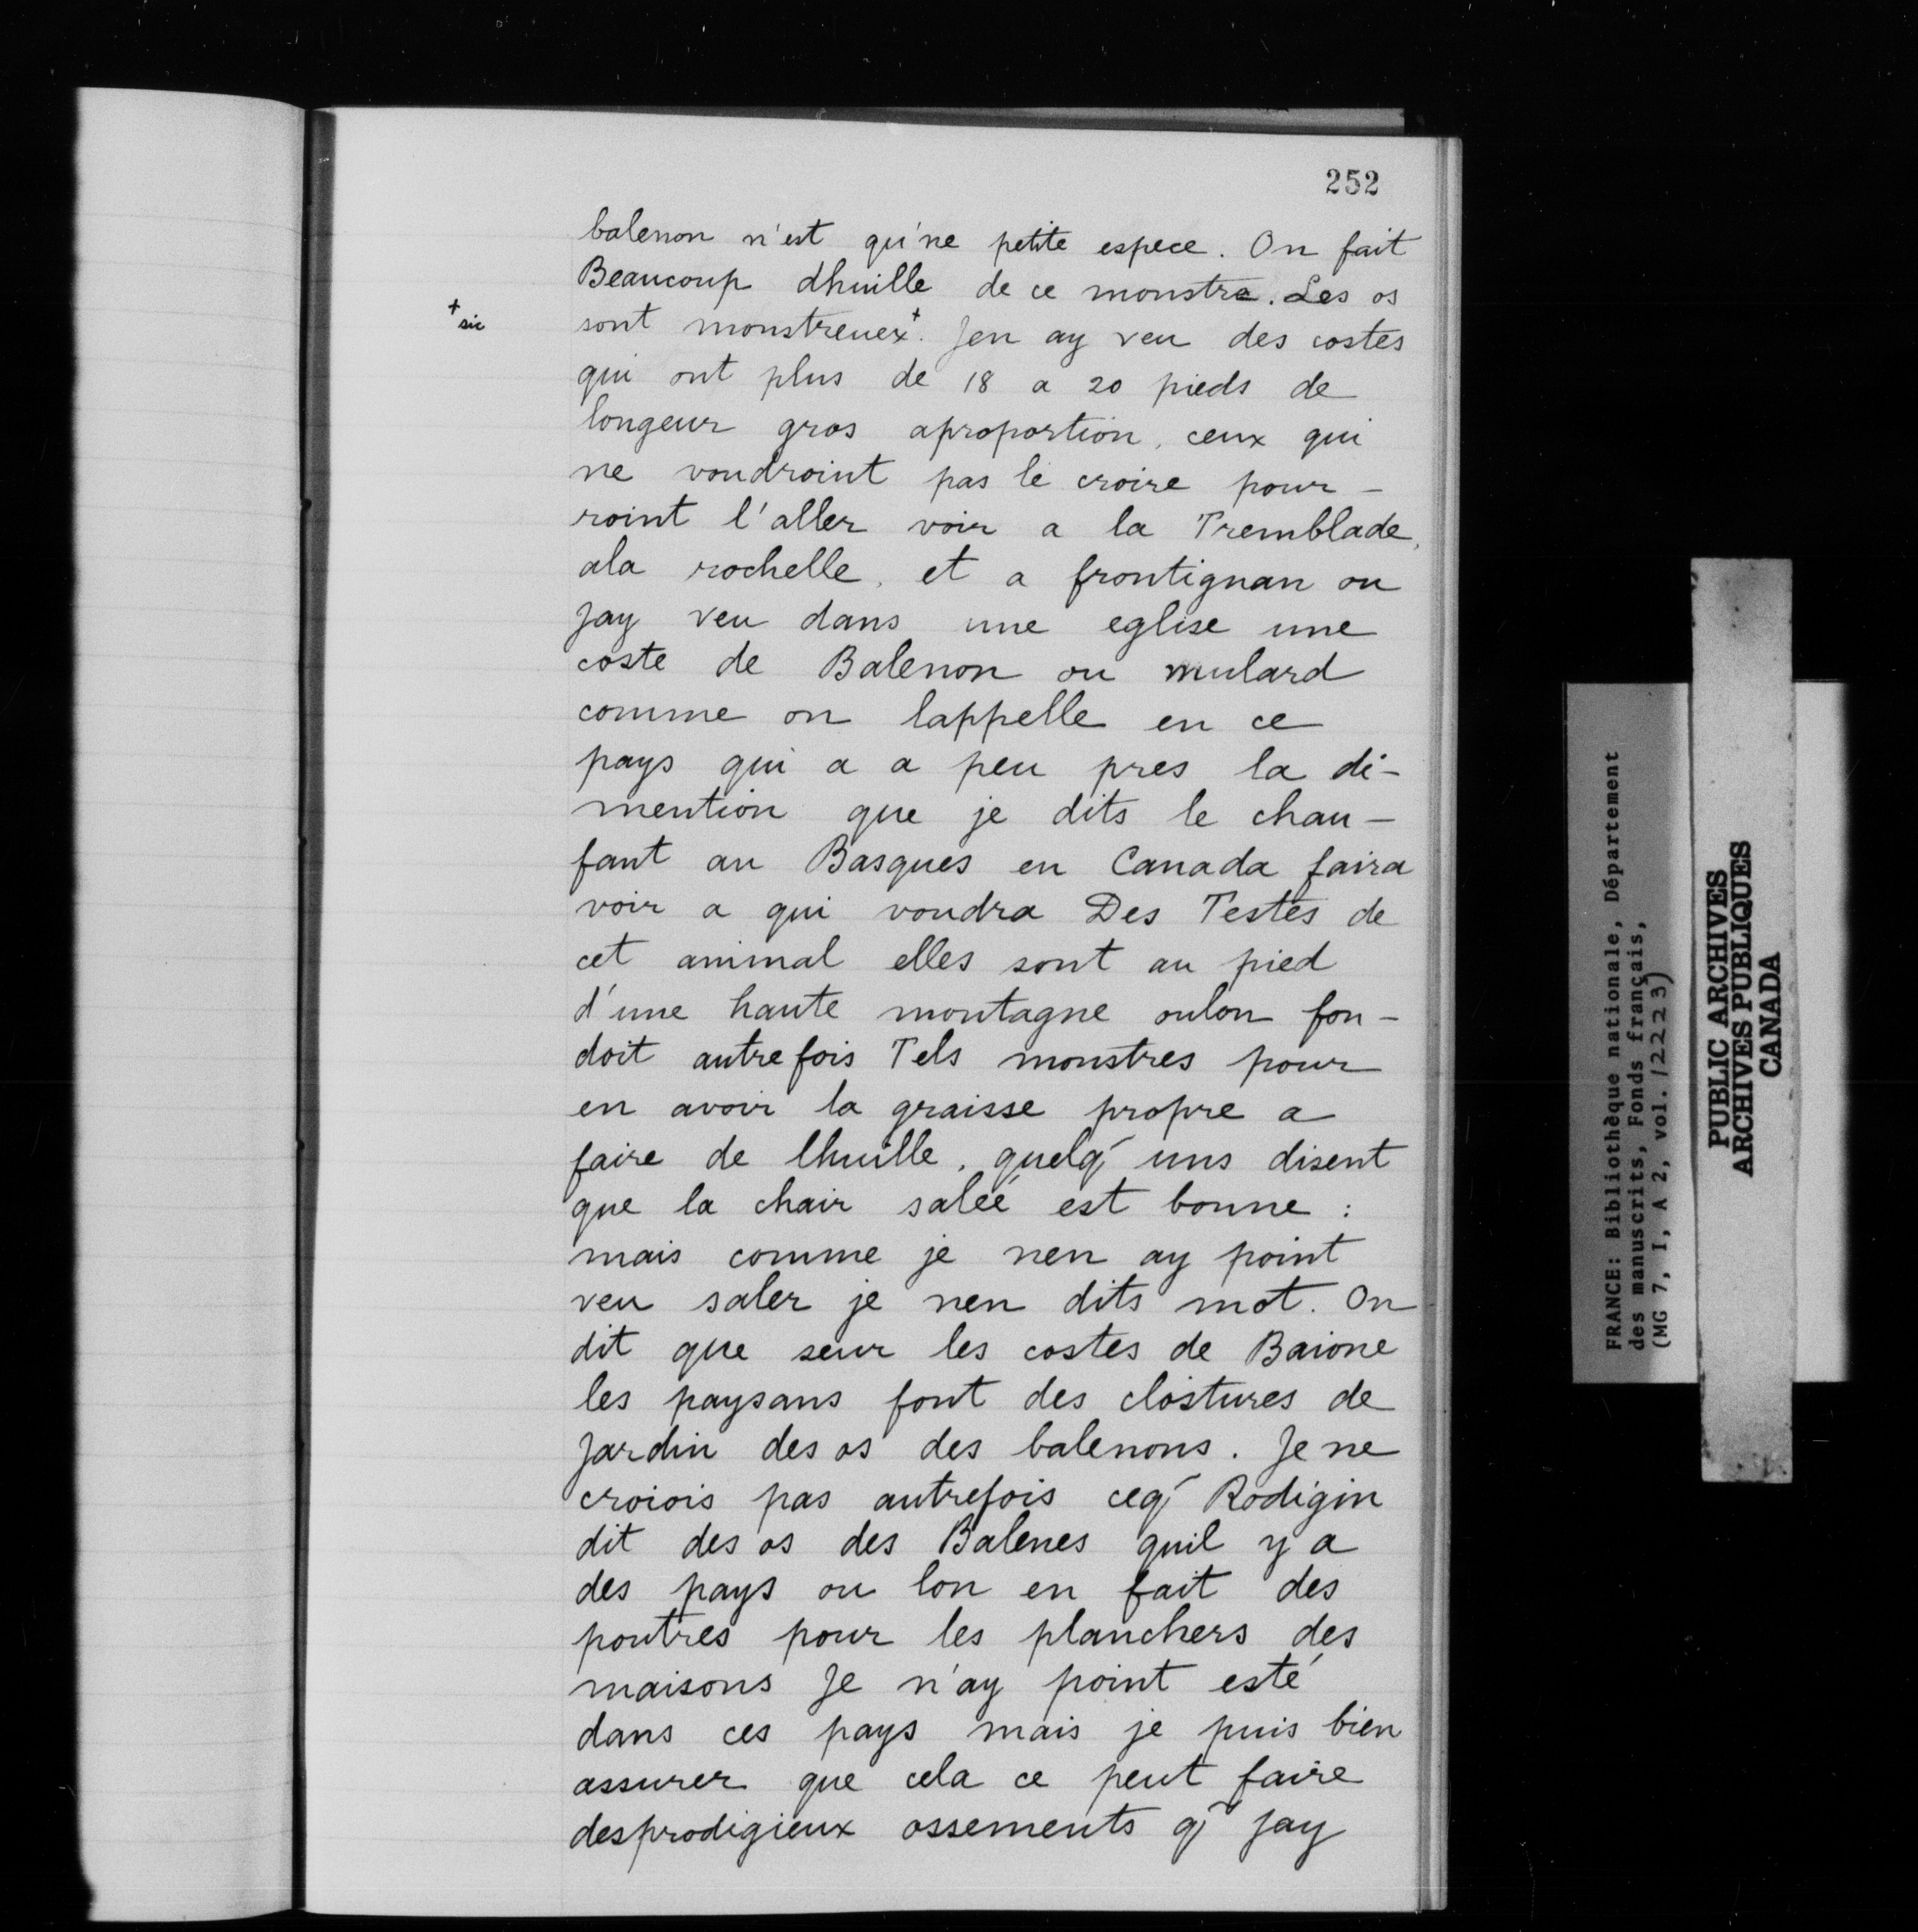 252
balenon n'est qu'ne petite espece. On fait
Beaucoup dhuille de ce monstre. Les os
+ sic
sont monstreuex+. Jen ay veu des costes
qui ont plus de 18 a 20 pieds de
longeur gros aproportion, ceux qui
ne voudroint pas le croire pour-
roint l'aller voir a la Tremblade,
ala rochelle, et a frontignan ou
Jay veu dans une eglise une
coste de Balenon ou mulard
comme on lappelle en ce
pays qui a a peu pres la di-
mention que je dits le chau-
fant au Basques en Canada faira
voir a qui voudra Des Testes de
cet animal elles sont au pied
d'une haute montagne oulon fon-
doit autrefois Tels monstres pour
en avoir la graisse propre a
faire de lhuille, quelq́ uns disent
que la chair saleé est bonne :
mais comme je nen ay point
veu saler je nen dits mot. On
dit que seur les costes de Baione
les paysans font des clostures de
Jardin des os des balenons. Je ne
croiois pas autrefois ceq́ Rodigin
dit des os des Balenes quil y a
des pays ou lon en fait des
poutres pour les planchers des
maisons Je n'ay point esté
dans ces pays mais je puis bien
assurer que cela ce peut faire
desprodigieux ossements q̃ Jay
FRANCE: Bibliothèque nationale, Département
des manuscrits, Fonds français,
(MG 7, I, A 2, vol. 12223)
PUBLIC ARCHIVES
ARCHIVES PUBLIQUES
CANADA